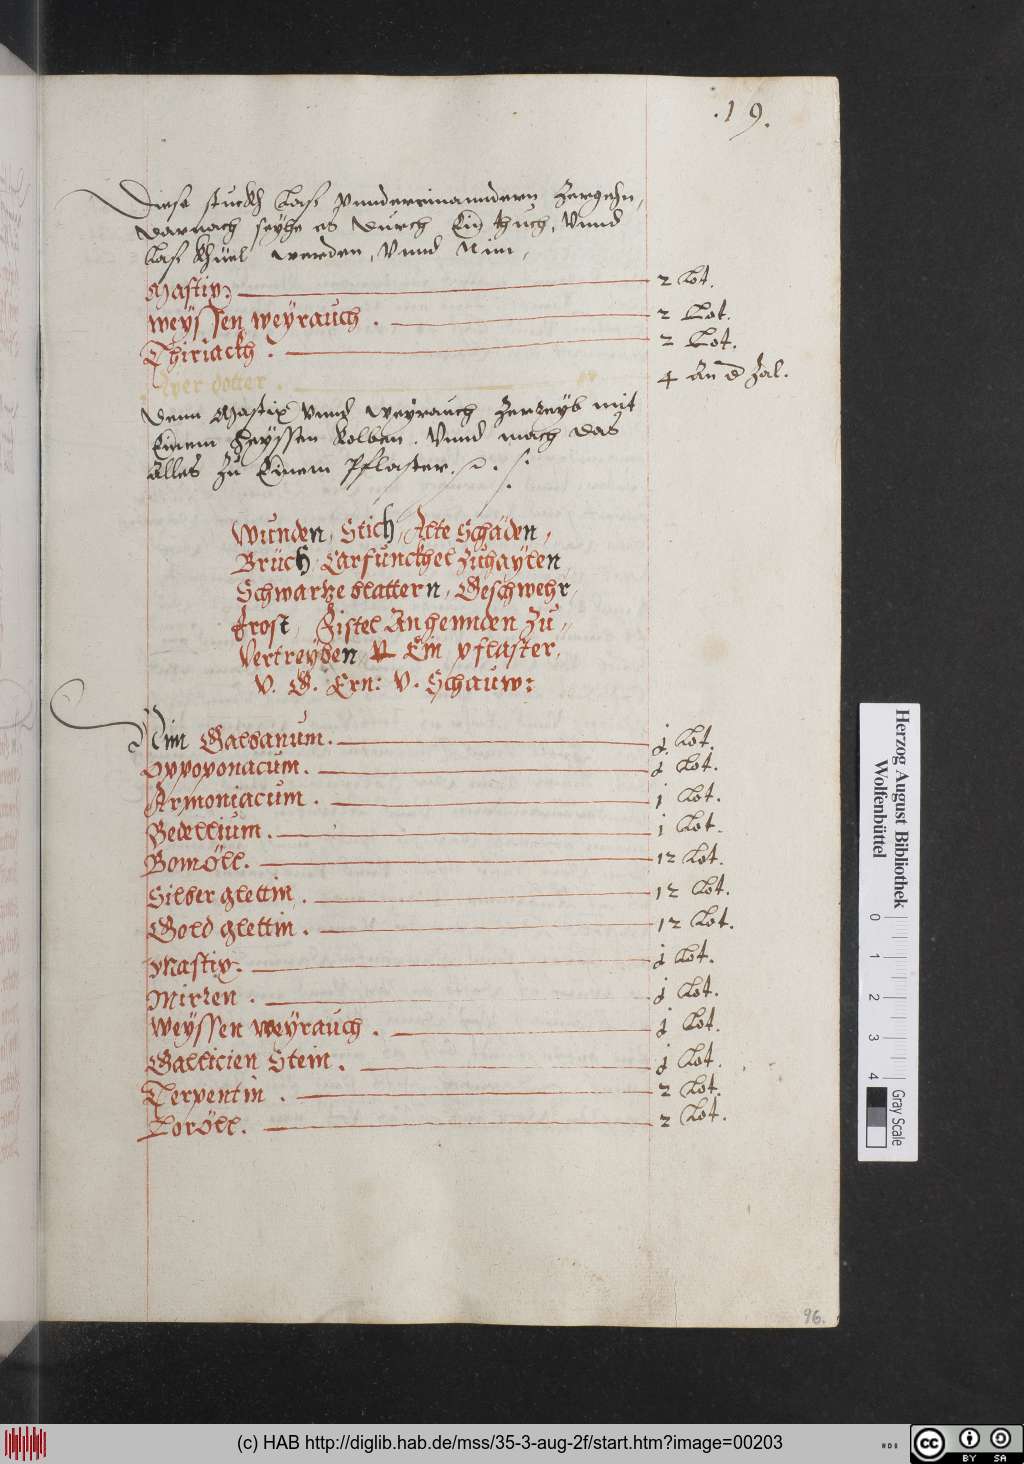 .19.
Diese stuckh lass Vndereinanndern Zergehn,
darnach seyhe es durch Ein thuch, Vnnd
lass khüel werden, Vnnd Nim,
Mastix: 2 Lot.
Weyssen Weyrauch . 2 Lot.
Thiriackh . 2 Lot.
Ayer dotter . 4 An d Zal.
Denn Mastix Vnnd Weyrauch Zerreyb mit
Einem Heyssen Kolben . Vnnd mach das
alles Zu Einem Pflaster.
Wunden, Stich, Alte Schäden,
Brüch, Carfunckhel Zuhaylen,
Schwartze blattern, Geschwehr,
Frost, Fistel Angennden Zu,
Vertreyben, Ein pflaster,
V. G. Ern: V. Schauw:
Nim Galbanum. j Lot.
Oppoponacum. j Lot.
Armoniacum . i Lot.
Bedellium. i Lot.
Bomöll. 12 Lot.
Silber glettin . 12 Lot.
Gold glettin . 12 Lot.
Mastix. j Lot.
Mirren . j Lot.
Weyssen Weyrauch . j Lot.
Gallicien Stein . j Lot.
Terpentin . 2 Lot.
Loröll. 2 Lot.
96.
Herzog August Bibliothek
Wolfenbüttel
0 1 2 3 4
Gray Scale
(c) HAB http://diglib.hab.de/mss/35-3-aug-2f/start.htm?image=00203
cc BY SA